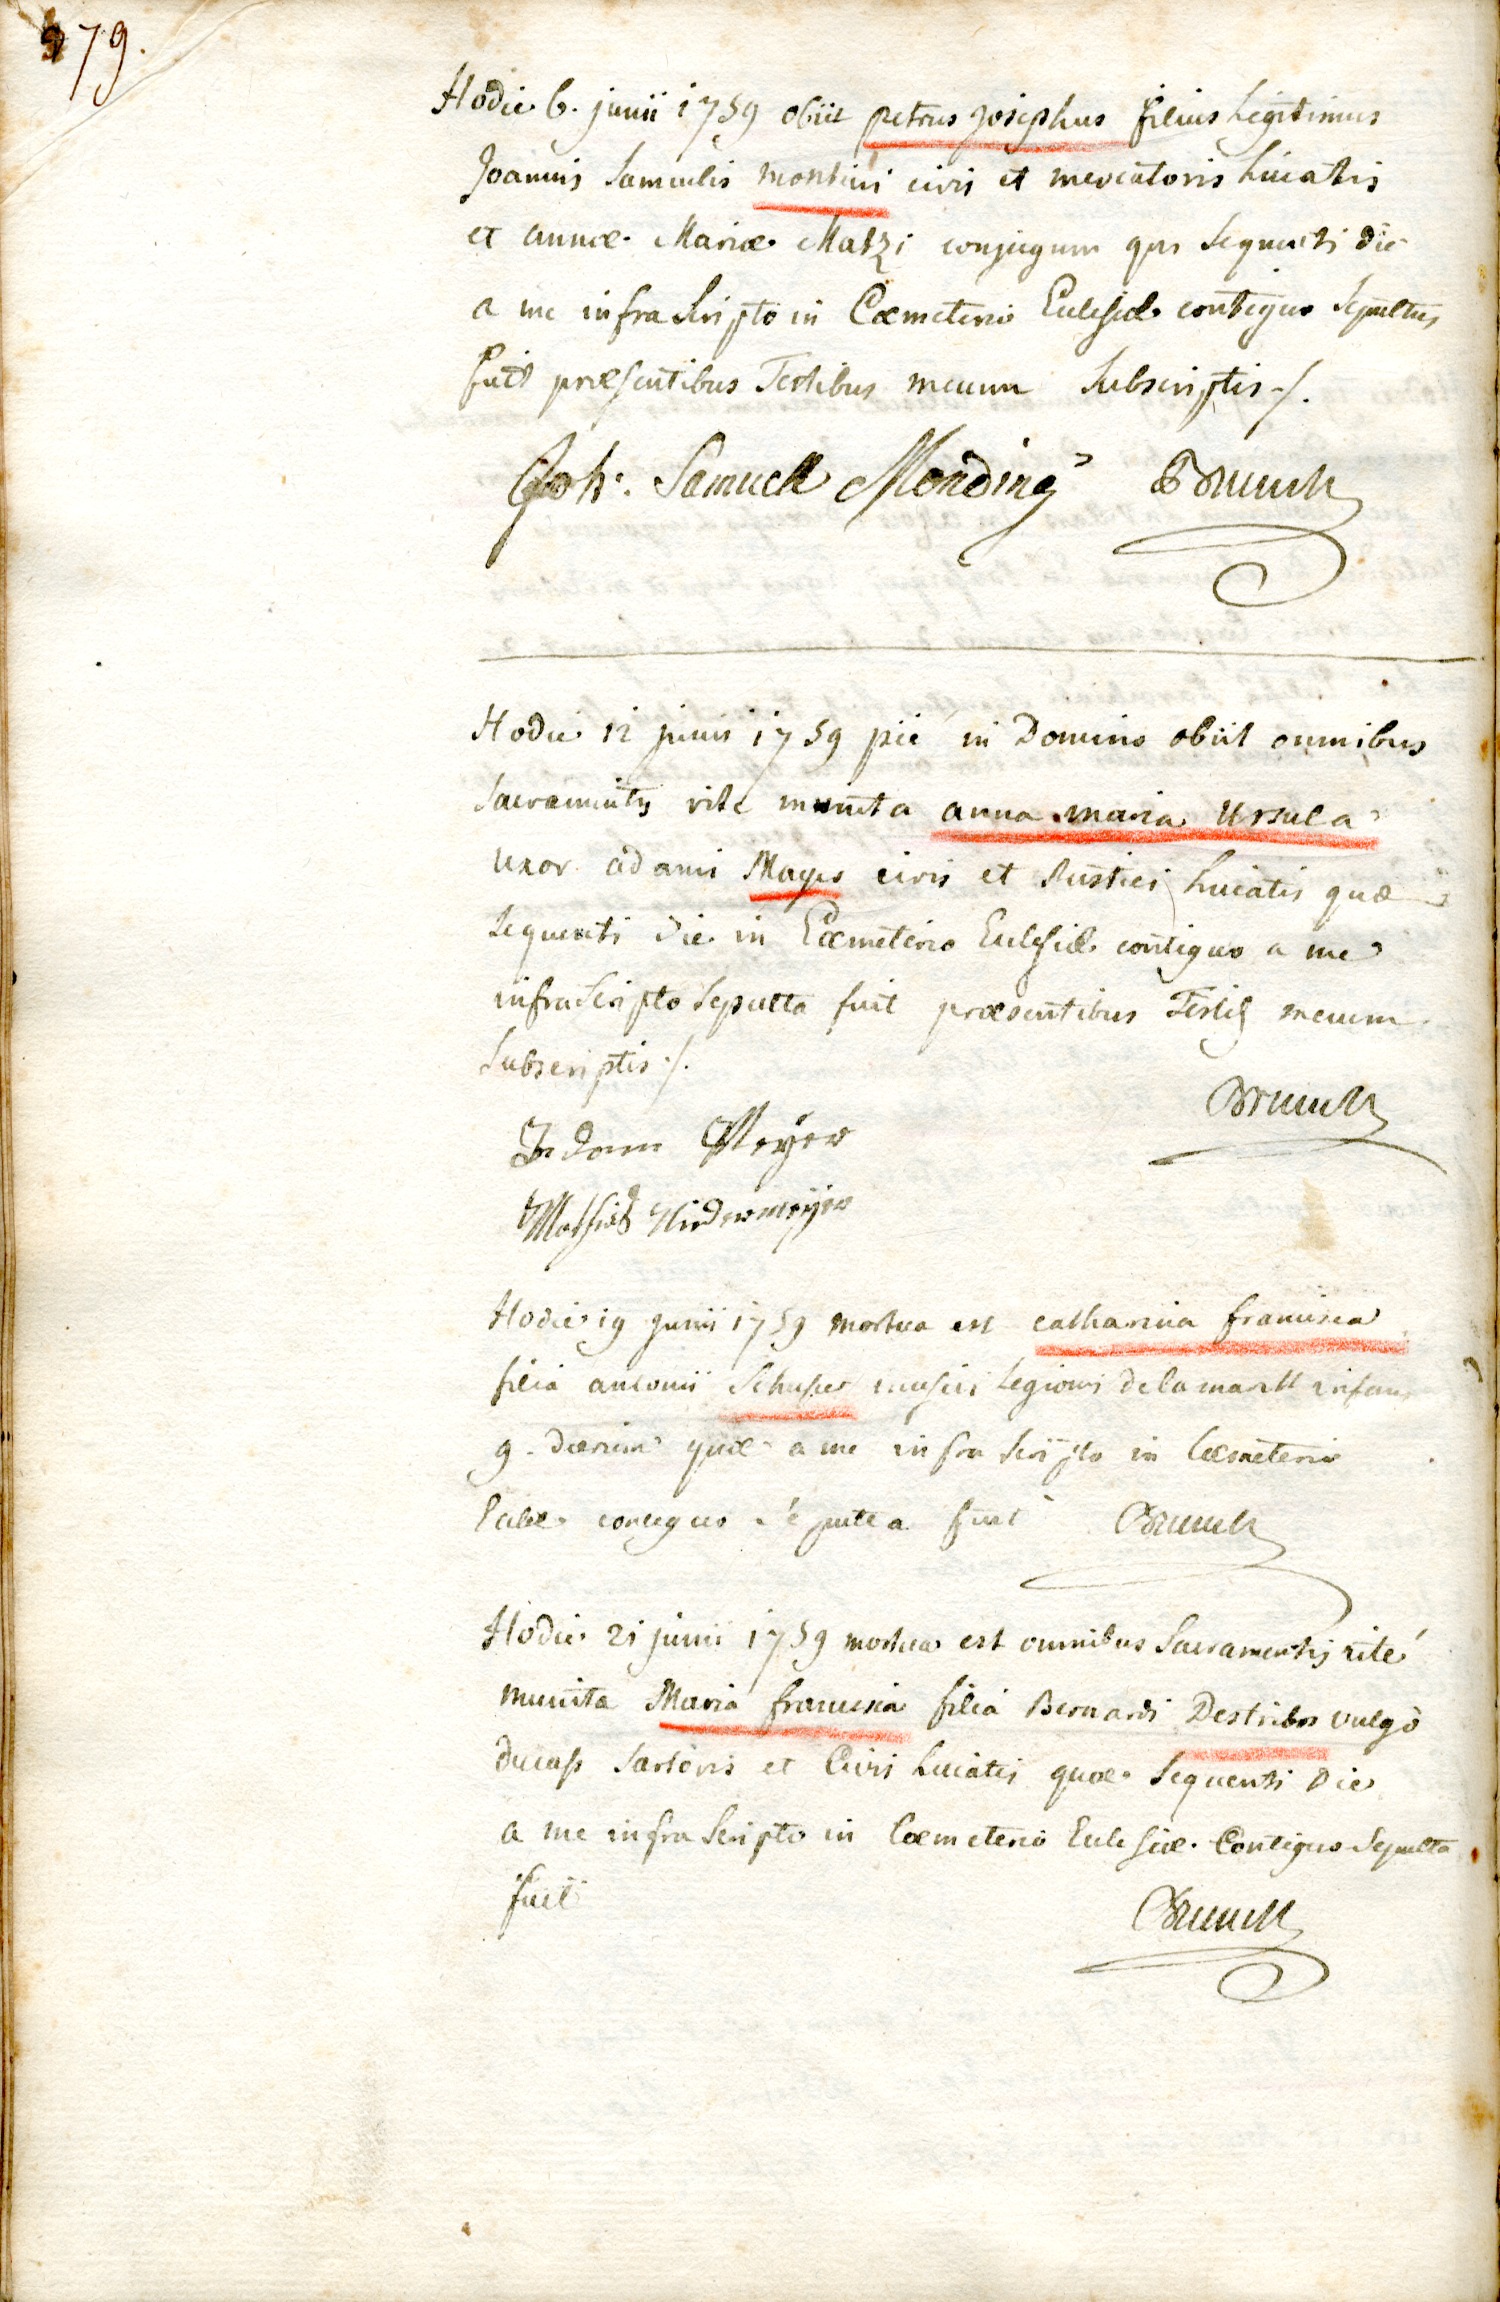 379.
Hodie 6. junii 1759 obiit petrus Josephus filius Legitimus
Joannis Samuelis montini civis et mercatoris huiatis
et annæ Mariæ Matzi conjugum qui sequenti die
a me infra scripto in Cœmeterio Eclesiæ contiguo sepultus
fuit præsentibus Testibus mecum subscriptis ./.
Joh. Samuell Monding Brunck
Hodie 12 junii 1759 pié in Domino obiit omnibus
sacramentis rite munita anna maria Ursula
uxor adami Mayer civis et rustici huiatis quæ
sequenti die in Cœmeterio Eclesiæ contiguo a me
infrascripto sepulta fuit præsentibus Testib mecum
subscriptis ./.
Brunck
Meÿer
Mathias Nidermeÿer
Hodie 19 Junii 1759 mortua est catharina francisca
filia antonii musici Legionis de la marck infans
9. dierum quæ a me infra scripto in Cœmeterio
Eclæ contiguo sepulta fuit Brunck
Hodie 21 junii 1759 mortua est omnibus Sacramentis rité
munita Maria francisca filia Bernardi Destribos vulgò
ducass sartoris et Civis huiatis quæ sequenti die
a me infra scripto in Cœmeterio Eclesiæ Contiguo sepulta
fuit
Brunck